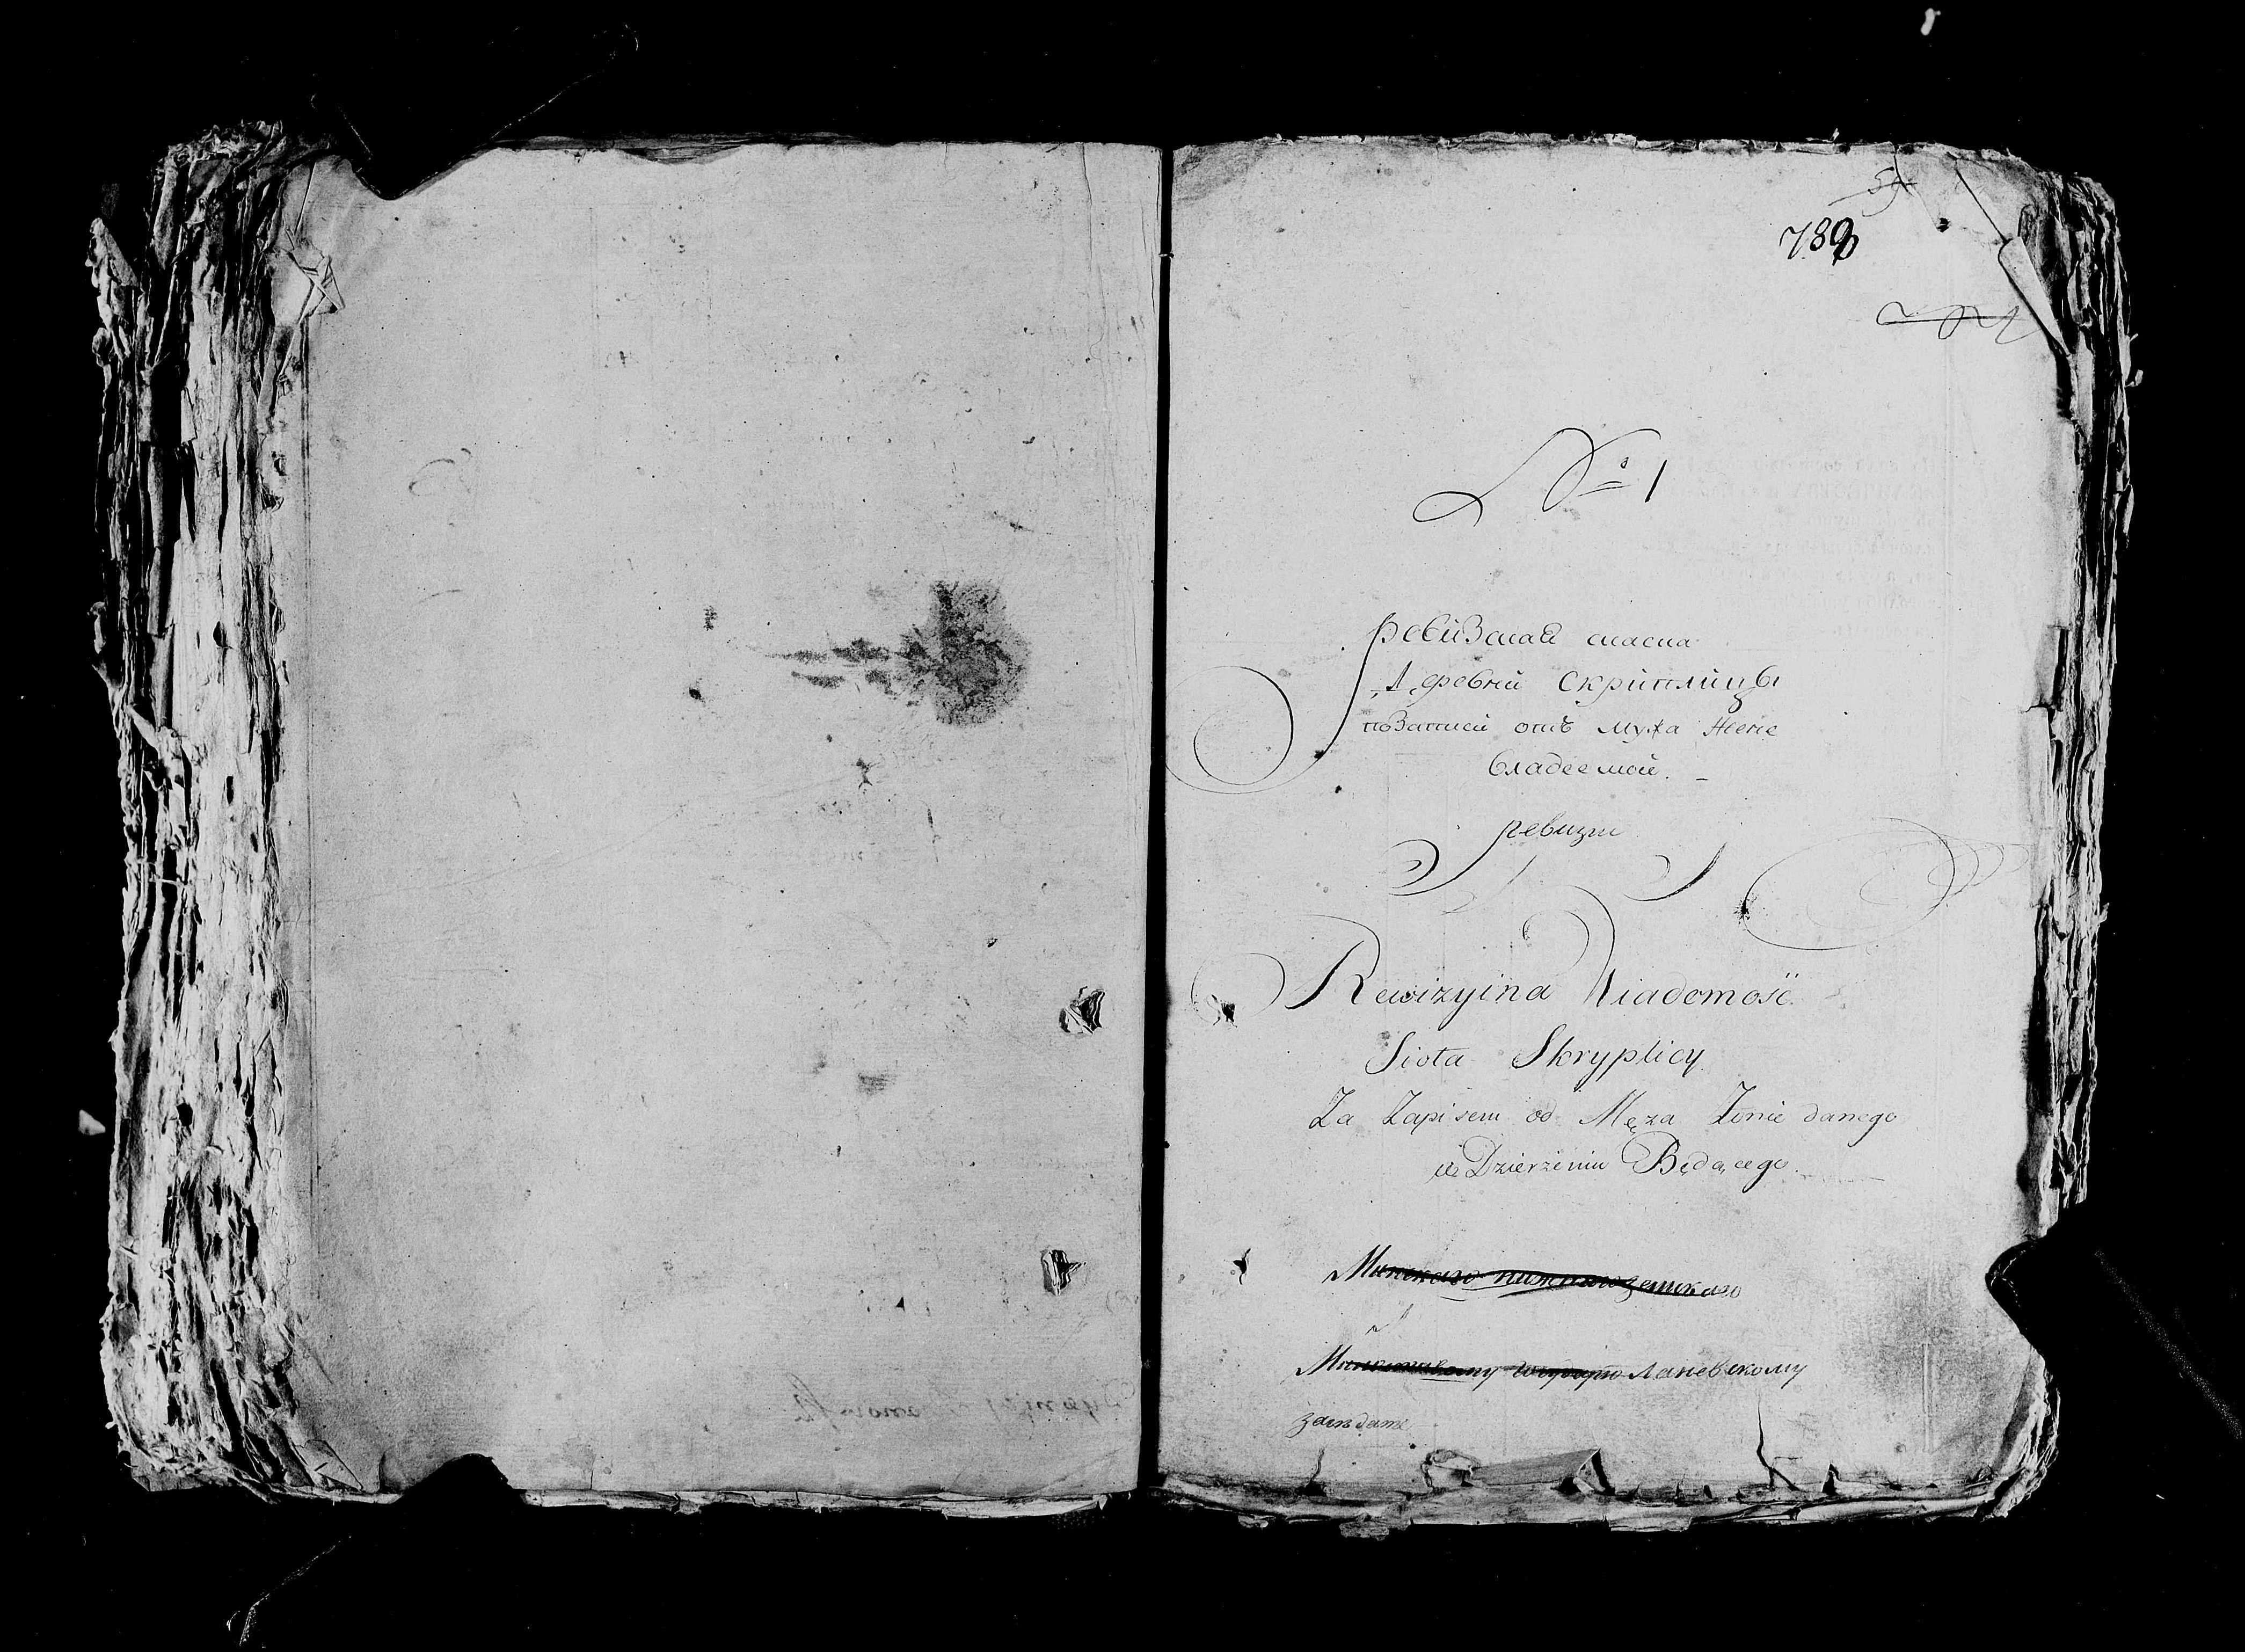 789
№ 1
ревизская скаска
деревни Скриплицы
по записи отъ мужа жене
владеемой.
ревизии
Rewizyina Wiadomość
Sioła Skryplicy
Za Zapisem od Męża Żonie danego
w Dzierżeniu Będącego.
Минскаго нижняго земскаго
Лапевскому